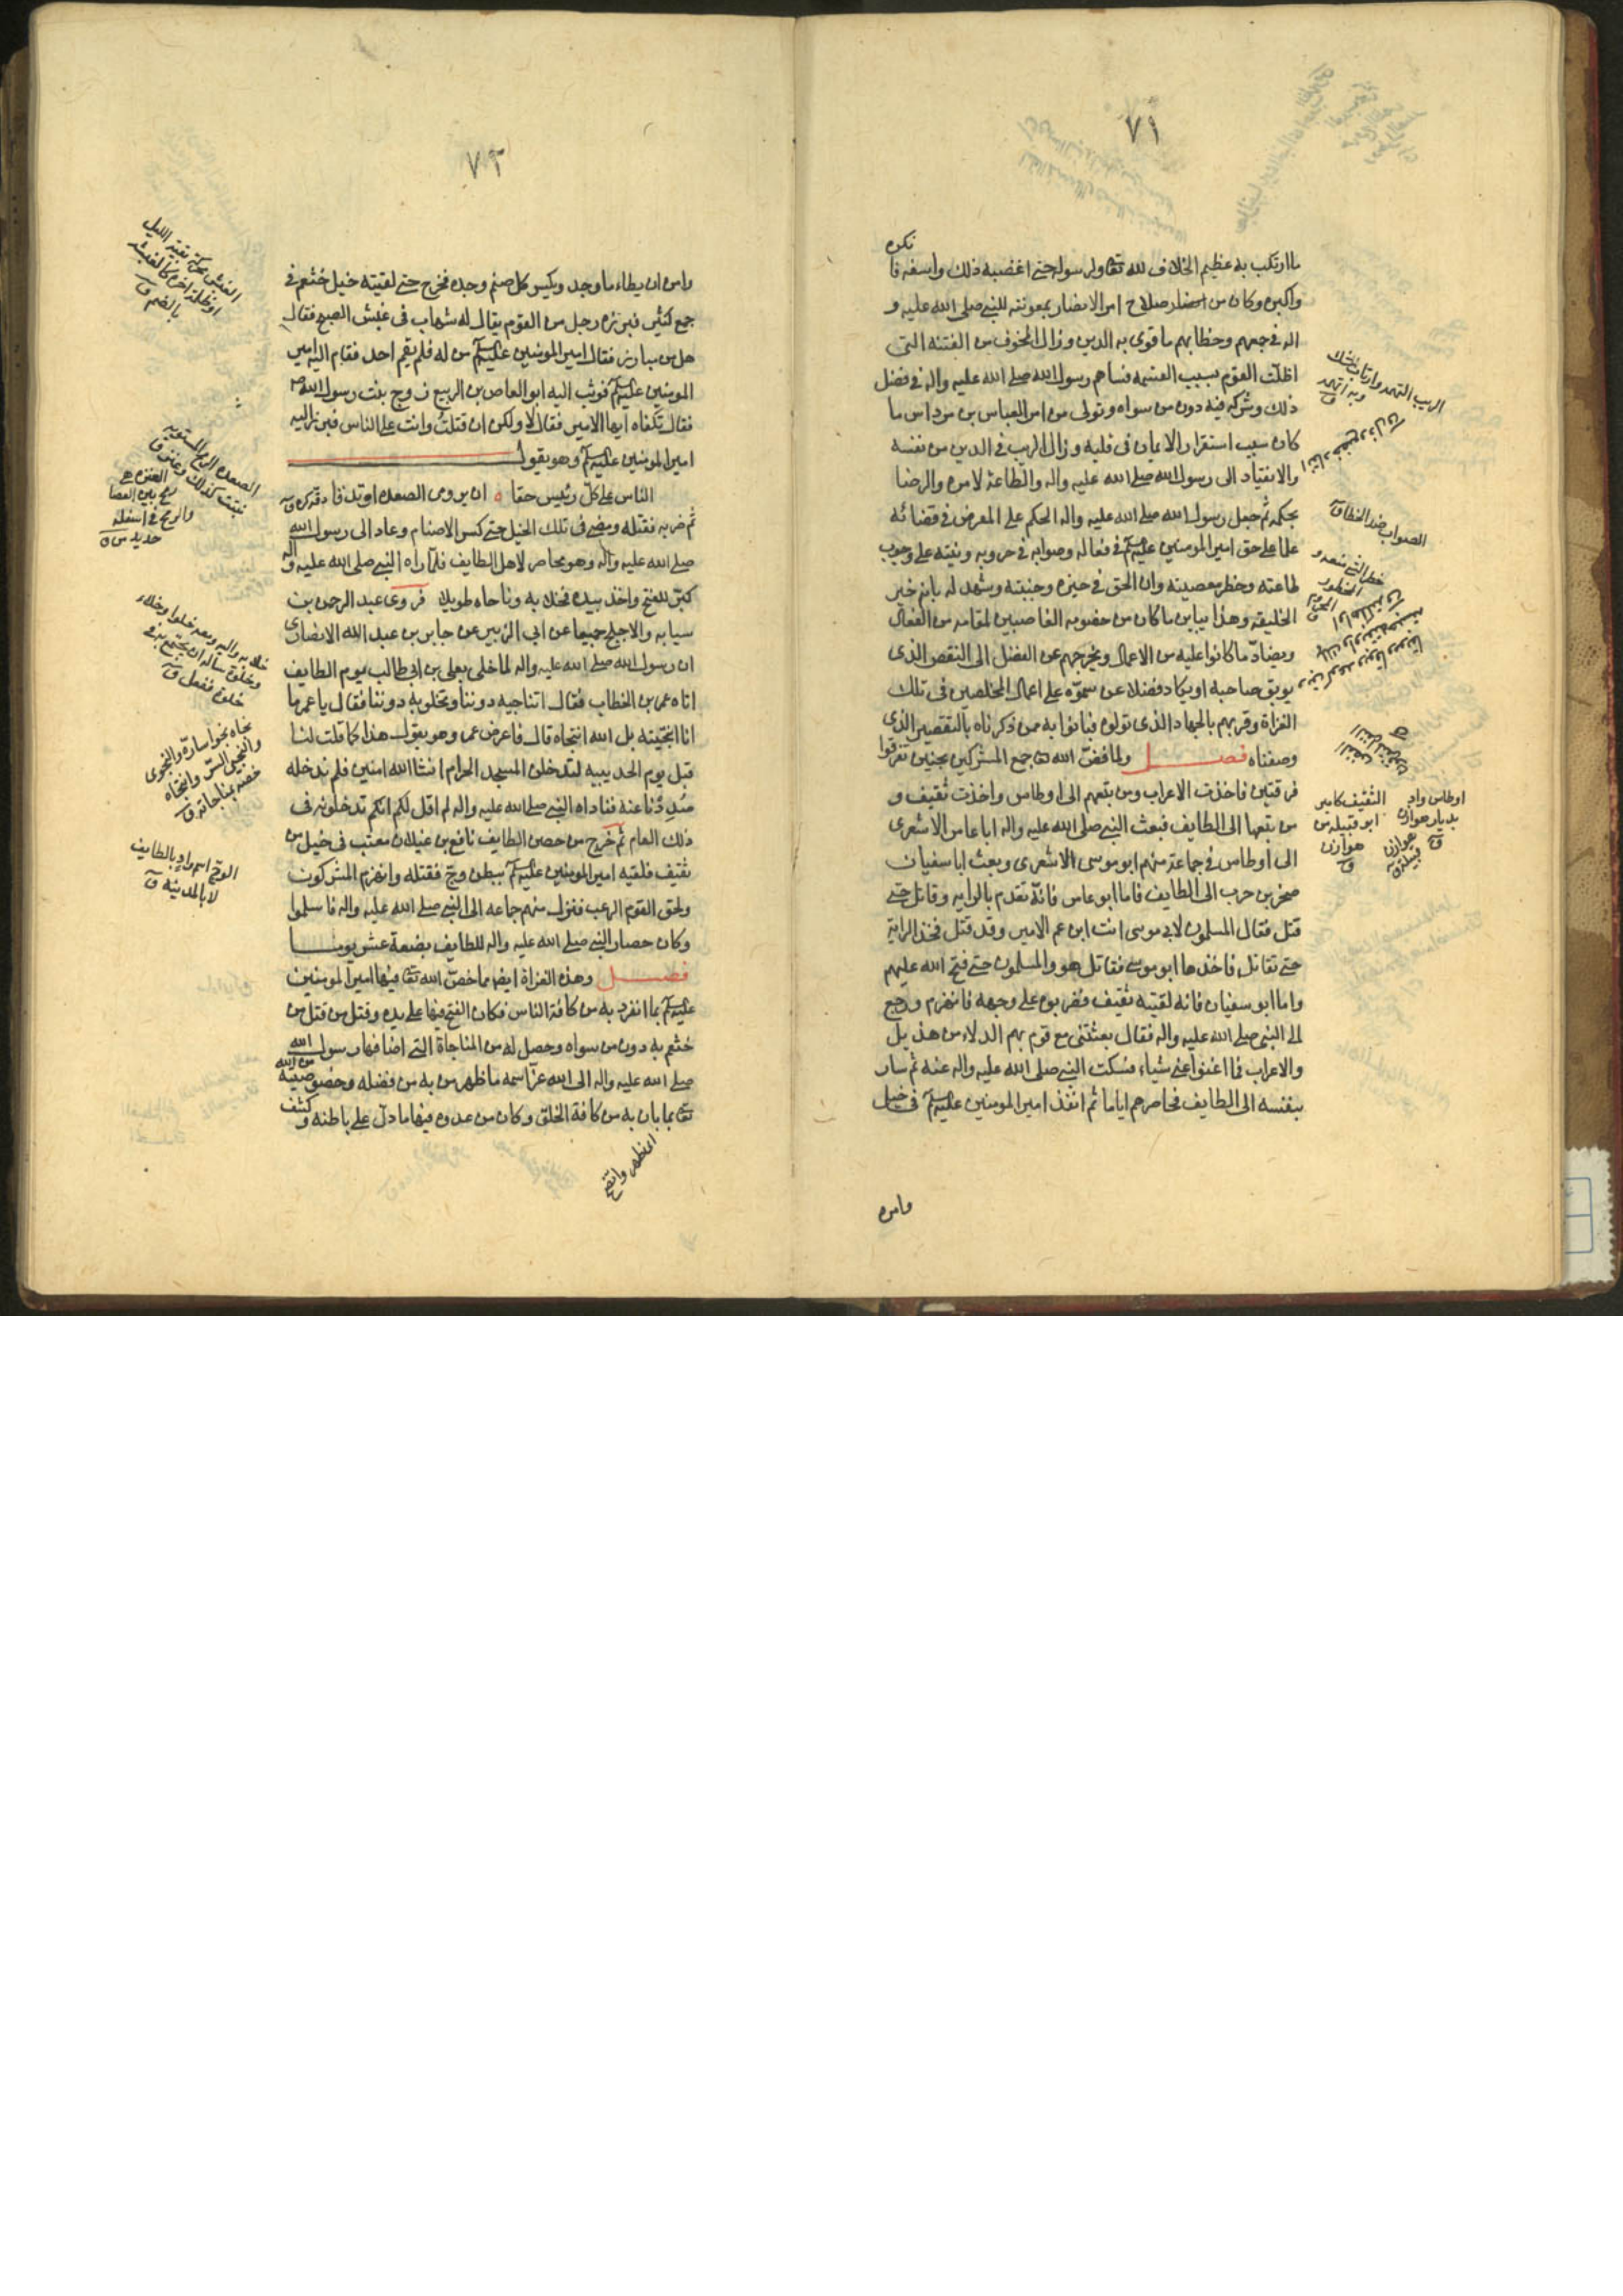 ٧١
ما ارتكب به عظيم الخلاف لله تعا ولرسوله حتى اغضبه ذلك واسفه فا
نكره
واكبره وكان من صلاح امر الانصار بمعونته للنبي صلى الله عليه و
اله في جمعهم وخطابهم ما قوى به الدين وزال الخوف من الفتنه التى
اظلت القوم بسبب القسمه فساهم رسول الله صلى الله عليه واله في فضل
ذلك وشركه فيه دون من سواه وتولى من امر العباس بن مرداس ما
كان سبب استقرار الايمان فى قلبه وزال الريب في الدين من نفسه
والانقياد الى رسول الله صلى الله عليه واله والطاعة لامره والرضا
بحكمه ثم جعل رسول الله صلى الله عليه واله الحكم على المعرض في قضائه
علما على حق امير المومنين عليه السلم في فعاله وصوابه في حروبه ونبه على وجوب
طاعته وحظر معصيته وان الحق في حيزه وجنبته وشهد له بانه خير
الخليقه وهذا يباين ما كان من خصومه الغاصبين لمقامه من الفعال
ويضاد ما كانوا عليه من الاعمال ويخرجهم عن الفضل الى النقص الذى
يوبق صاحبه او يكاد فضلا عن سموه على اعمال المخلصين فى تلك
الغزاة وقربهم بالجهاد الذى تولوه فبانوا به ممن ذكرناه بالتقصير الذى
وصفناه فصل ولما فض الله تعا جمع المشركين بحنين تفرقوا
فرقتين فاخذت الاعراب ومن تبعهم الى اوطاس واخذت ثقيف و
من تبعها الى الطايف فبعث النبي صلى الله عليه واله ابا عامر الاشعرى
الى اوطاس في جماعة منهم ابو موسى الاشعرى وبعث ابا سفيان
صخر بن حرب الى الطايف فاما ابو عامر فانه تقدم بالرايه وقاتل حتى
قتل فقال المسلمون لابي موسى انت ابن عم الامير وقد قتل فخذ الراية
حتى تقاتل فاخذها ابو موسى فقاتل هو والمسلمون حتى فتح الله عليهم
واما ابو سفيان فانه لقيته ثقيف فضربوه على وجهه فانهزم ورجع
الى النبي صلى الله عليه واله فقال بعثتنى مع قوم بهم الدلاء من هذيل
والاعراب فما اغنوا عني شياء فسكت النبي صلى الله عليه واله عنه ثم سار
بنفسه الى الطايف فحاصرهم اياما ثم انفذ امير المومنين عليه السلم فى خيل
وامره
الصواب ضد الخطا ق
اوطاس واد
بديار هوازن
ق
الثقيف كامير
ابو قبيله من
هوازن
ق
٧٢
وامره ان يطاء ما وجد ويكسر كل صنم وجده فخرج حتى لقيته خيل خثعم في
جمع كثير فبرز ه رجل من القوم يقال له شهاب فى غبش الصبح فقال
هل من مبارز فقال امير المومنين عليه السلم من له فلم يقم احد فقام اليه امير
المومنين عليه السلم فوثب اليه ابو العاص بن الربيع زوج بنت رسول الله ص
فقال تكفاه ايها الامير فقال لا ولكن ان قتلت وانت على الناس فبرز اليه
امير المومنين عليه السلم وهو يقول
ان على كل رئيس حقا ه ان يروى الصعده او تدقا
ثم ضربه فقتله ومضى فى تلك الخيل حتى كسر الاصنام وعاد الى رسول الله
صلى الله عليه واله وهو محاصر لاهل الطايف فلما راه النبي صلى الله عليه واله
كبر للفتح واخذ بيده فخلا به وناجاه طويلا فروى عبد الرحمن بن
سيابه والاجلح جميعا عن ابي الزبير عن جابر بن عبد الله الانصارى
ان رسول الله صلى الله عليه واله لما خلى بعلى بن ابي طالب يوم الطايف
اتاه عمر بن الخطاب فقال اتناجيه دوننا وتخلو به دوننا فقال يا عمر ما
انا انتجيته بل الله انتجاه قال فاعرض عمر وهو يقول هذا كما قلت لنا
قبل يوم الحديبيه لتدخلن المسجد الحرام انشا الله امنين فلم ندخله
وصددنا عنه فناداه النبي صلى الله عليه واله لم اقل لكم انكم تدخلونه فى
ذلك العام ثم خرج من حصن الطايف نافع بن غيلان بن معتب فى خيل من
ثقيف فلقيه امير المومنين عليه السلم ببطن وج فقتله وانهزم المشركون
ولحق القوم الرعب فنزل منهم جماعه الى النبي صلى الله عليه واله فاسلموا
وكان حصار النبي صلى الله عليه واله للطايف بضعة عشر يوما
فصل وهذه الغزاة ايضا مما خص الله تعا فيها امير المومنين
عليه السلم بما انفرد به من كافة الناس فكان الفتح فيها على يده وقتل من قتل من
خثعم به دون من سواه وحصل له من المناجاة التى اضافها رسول الله
صلى الله عليه واله الى الله عز اسمه ما ظهر من به من فضله وخصوصيته من الله
تعا بما بان به من كافة الخلق وكان من عدوه فيها ما دل على باطنه وكشف
الوج اسم واد بالطايف
لا بالمدينة ق